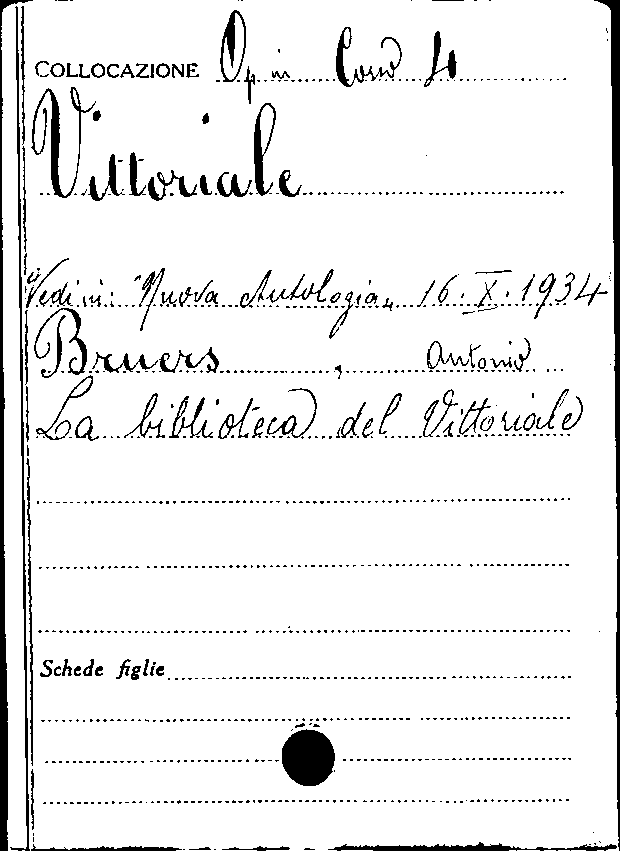 COLLOCAZIONE Op in Corso 4
Vittoriale
Vedi in: "Nuova Antologia„ 16.X.1934
Bruers, Antonio
La biblioteca del Vittoriale
Schede figlie